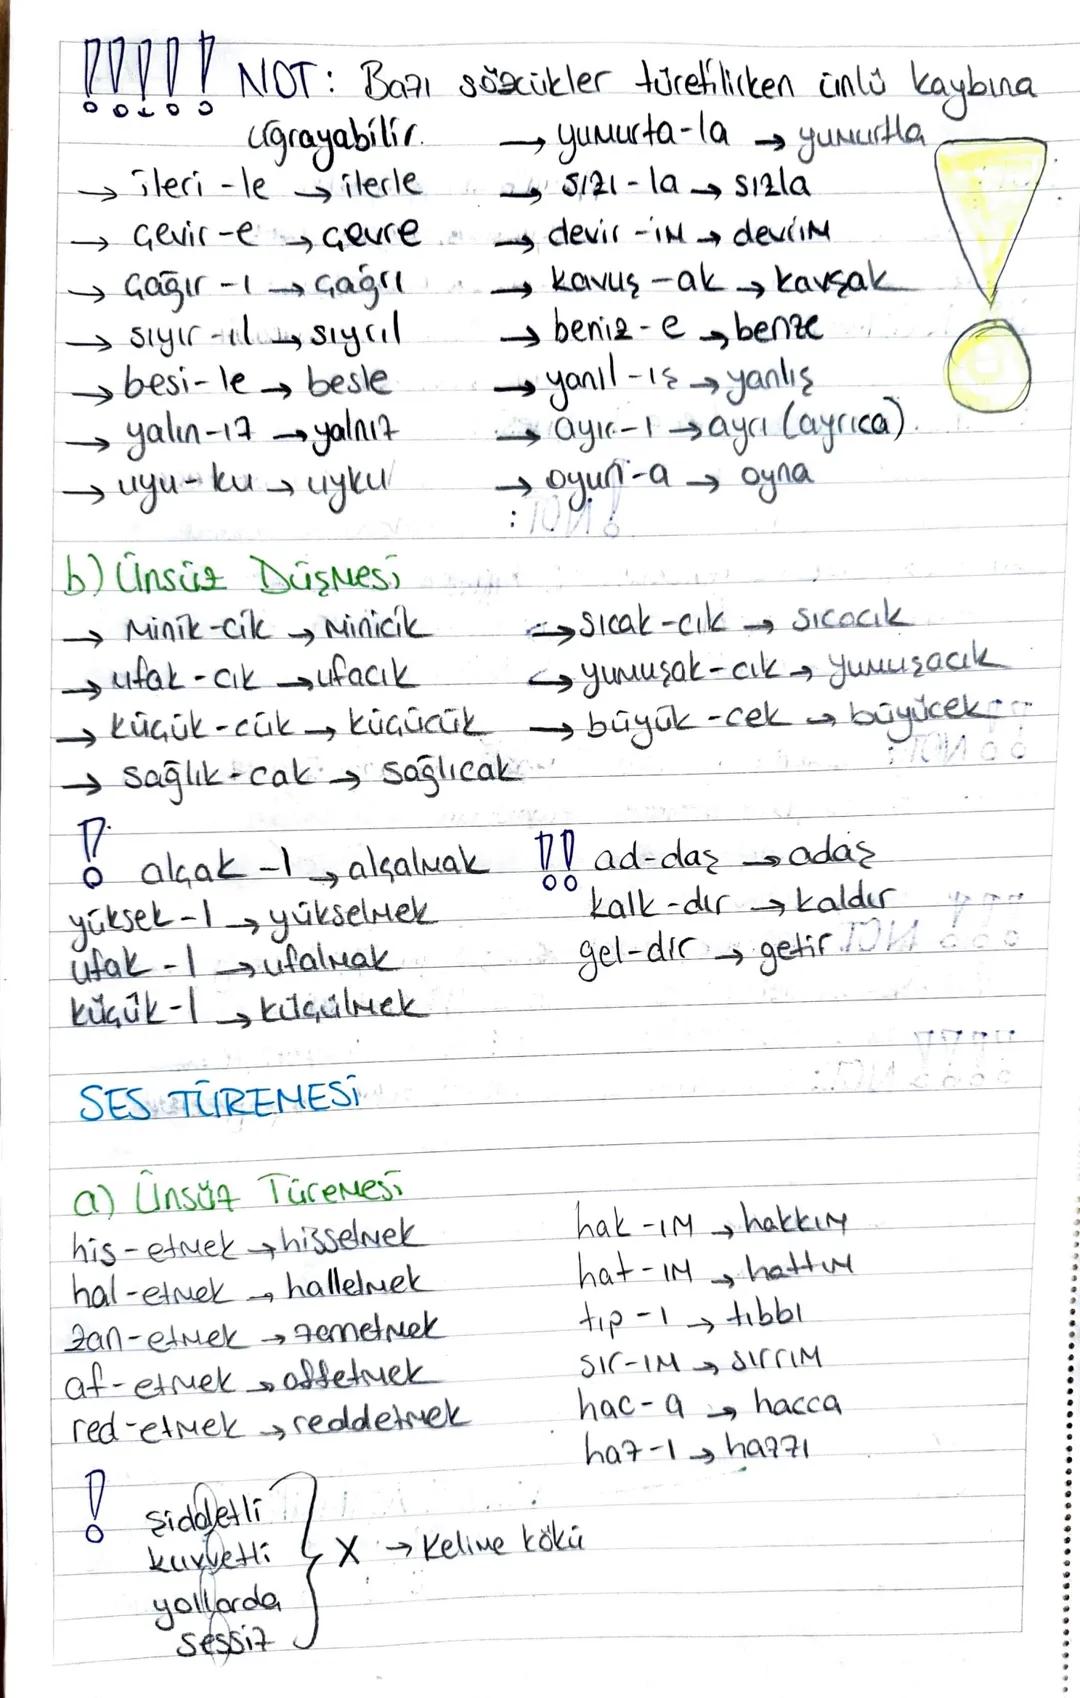 NOT: Bazı sözcükler türetilirken ünlü kaybına
uğrayabilir.
→ yumurta-la → yumurtla
→ ileri -le → ilerle
→ sızı - la → sızla
→ çevir-e → çevre
→ devir -im → devrim
→ çağır -ı → çağrı
→ kavuş -ak → kavşak
→ sıyır -ıl → sıyrıl
→ beniz - e → benze
→ besi- le → besle
→ yanıl -ış → yanlış
→ yalın-ız → yalnız
→ ayır-ı → ayrı (ayrıca)
→ uyu- ku → uyku
→ oyun-a → oyna
b) Ünsüz Düşmesi
→ Minik-cik → Minicik
→ sıcak -cık → sıcacık
→ ufak - cık → ufacık
→ yumuşak-cık → yumuşacık
→ küçük - cük → küçücük
→ büyük -cek → büyücek
→ sağlık - cak → sağlıcak
! alçak -l → alçalmak
!! ad-daş → adaş
yüksek -l → yükselmek
kalk -dır → kaldır
ufak - l → ufalmak
gel-dir → getir
küçük-l → küçülmek
SES TÜREMESİ
a) Ünsüz Türemesi
his - etmek → hissetmek
hak -ım → hakkım
hal -etmek → halletmek
hat-ım → hattım
zan-etmek → zannetmek
tıp -ı → tıbbı
af- etmek → affetmek
sır-ım → sırrım
red-etmek → reddetmek
hac- a → hacca
haz-ı → hazzı
! şiddetli
kuvvetli } X → Kelime kökü
yollarda
sessiz